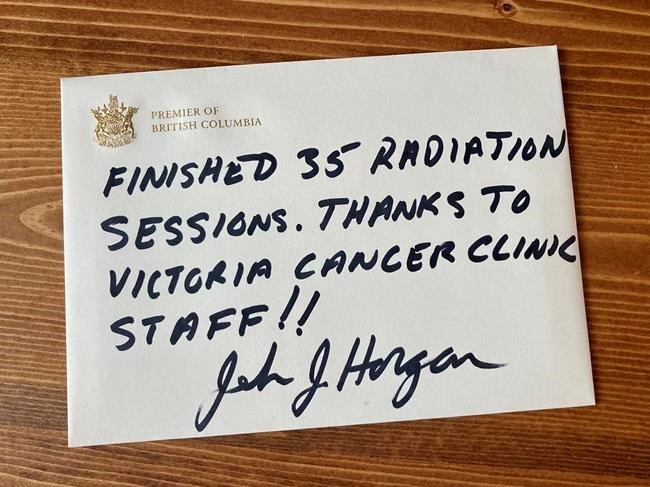 PREMIER OF
BRITISH COLUMBIA
FINISHED 35 RADIATION
SESSIONS. THANKS TO
VICTORIA CANCER CLINIC
STAFF!!
John J Horgan